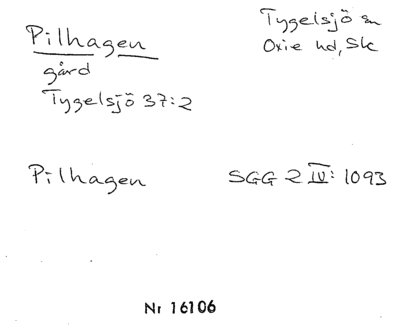 Pilhagen
gård
Tygelsjö 37:2
Tygelsjö sn
Oxie hd, Sk
Pilhagen
SGG 2 IV: 1093
Nr 16106